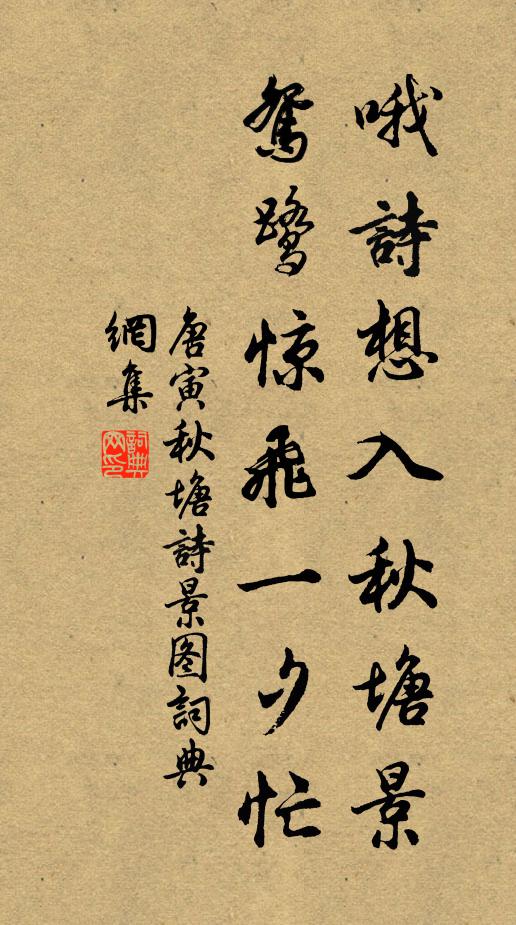 哦詩想入秋塘景
鴛鷺惊飛一夕忙
唐寅秋塘詩景图詞典
網集
詞典網印